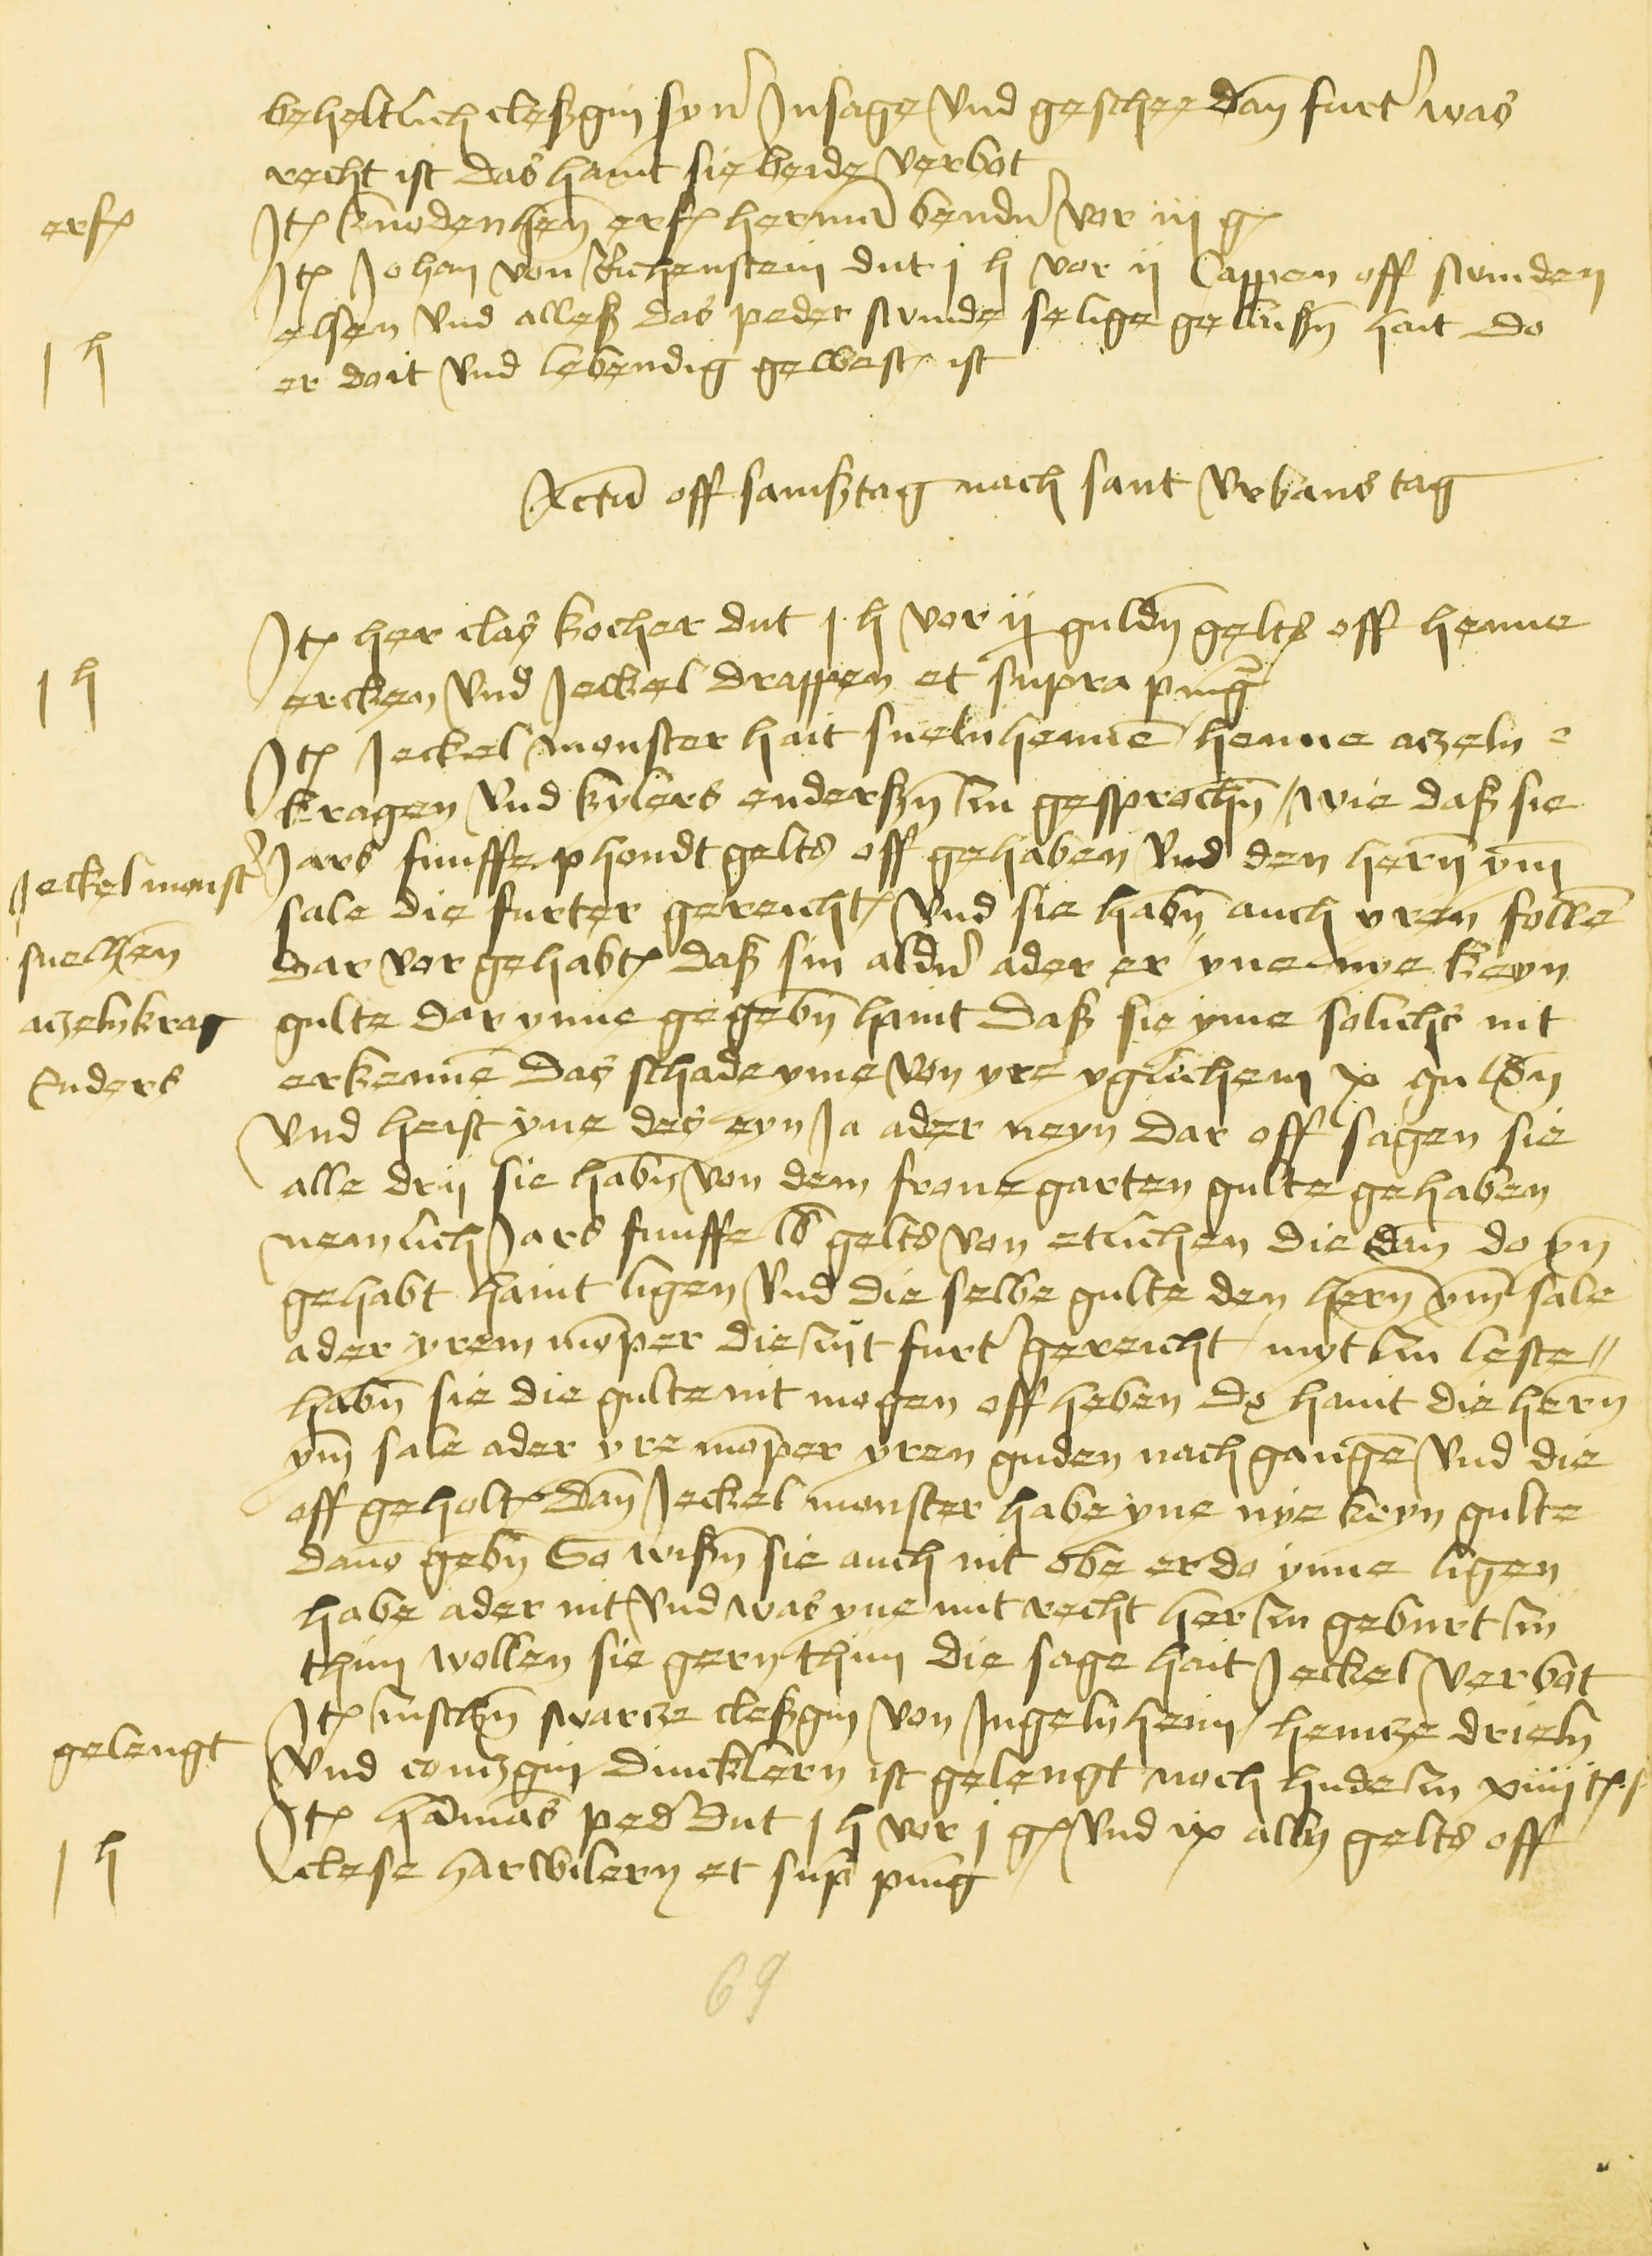 beheltlich cleßgin syn' Insage vnd geschee dan̄ furt' was
recht ist das haint sie beide verbot
erf
It Knoden hen̄ erf herma' bend' vor iij g
It Johan von Richenstein dut j h vor ij Cappen off swinden
elsen vnd alleß das peder swinde selige gelaiſſn̄ hait do
j h
er doit vnd lebendig gewest ist
Actu' off samßtag nach sant vrbans tag
It her clas kocher dut j h vor ij guldn̄ gelts off henne
j h
ercken vnd Jeckel drappen et supra ping
It Jeckel monster hait sneln henne henne aczeln
kragen vnd kylers enderßn̄ zu gesprochn̄ wie daß sie
Jeckel monst'
Jars funffe phondt gelts off gehaben vnd den hern̄ ym̄
sale die furter gereicht vnd sie habn̄ auch yren follē
snelhen̄
dar vor gehabt daß sin ald' ader er yne nye keyn
aczelnkrag
gulte dar ynne gegebn̄ haint daß sie yme solichs nit
Enders
erkennē das schade yme von yre yglichem x guldn̄
vnd heist yne des eyn Ja ader neyn dar off sagen sie
alle drij sie habn̄ von dem fronegarten gulte gehaben
nemlich Jars funffe lb gelts von etlichen die dan̄ do yn̄
gehabt haint ligen vnd die selbe gulte den hern̄ ym̄ sale
ader yrem mōper die zijt furt' gereicht nyt zu leste
habn̄ sie die gulte nit mogen off heben do haint die hern̄
ym̄ sale ader yre mōper yren guden nach gangē vnd die
off geholt dan̄ Jeckel monster habe yne nye keyn gulte
dauo gebn̄ So wißn̄ sie auch nit obe er do ynne ligen
habe ader nit vnd was yne mit recht her zu geburt zu
thun wollen sie gern thun die sage hait Jeckel verbot
It zuschn̄ swarcze cleßgin von Ingelnheim heincze drieln
gelengt
vnd conczgin dincklern ist gelengt noch hude zu xiiij t
It hādmās ped' dut j h vor j g vnd ix alb gelts off
j h
clese harwilern et sup ping
69